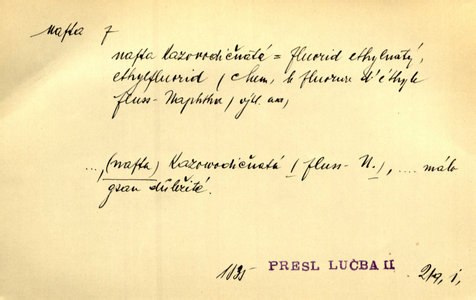 nafta 7
nafta kazovodičnatá = fluorid ethylnatý,
ethylfluorid / chem, le fluorure d'éthyle
fluss-Naphtha /
..., (nafta) kazovodičnatá / fluss-N. /, .... málo
jsau důležité.
1835 PRESL LUČBA II 219, 1,